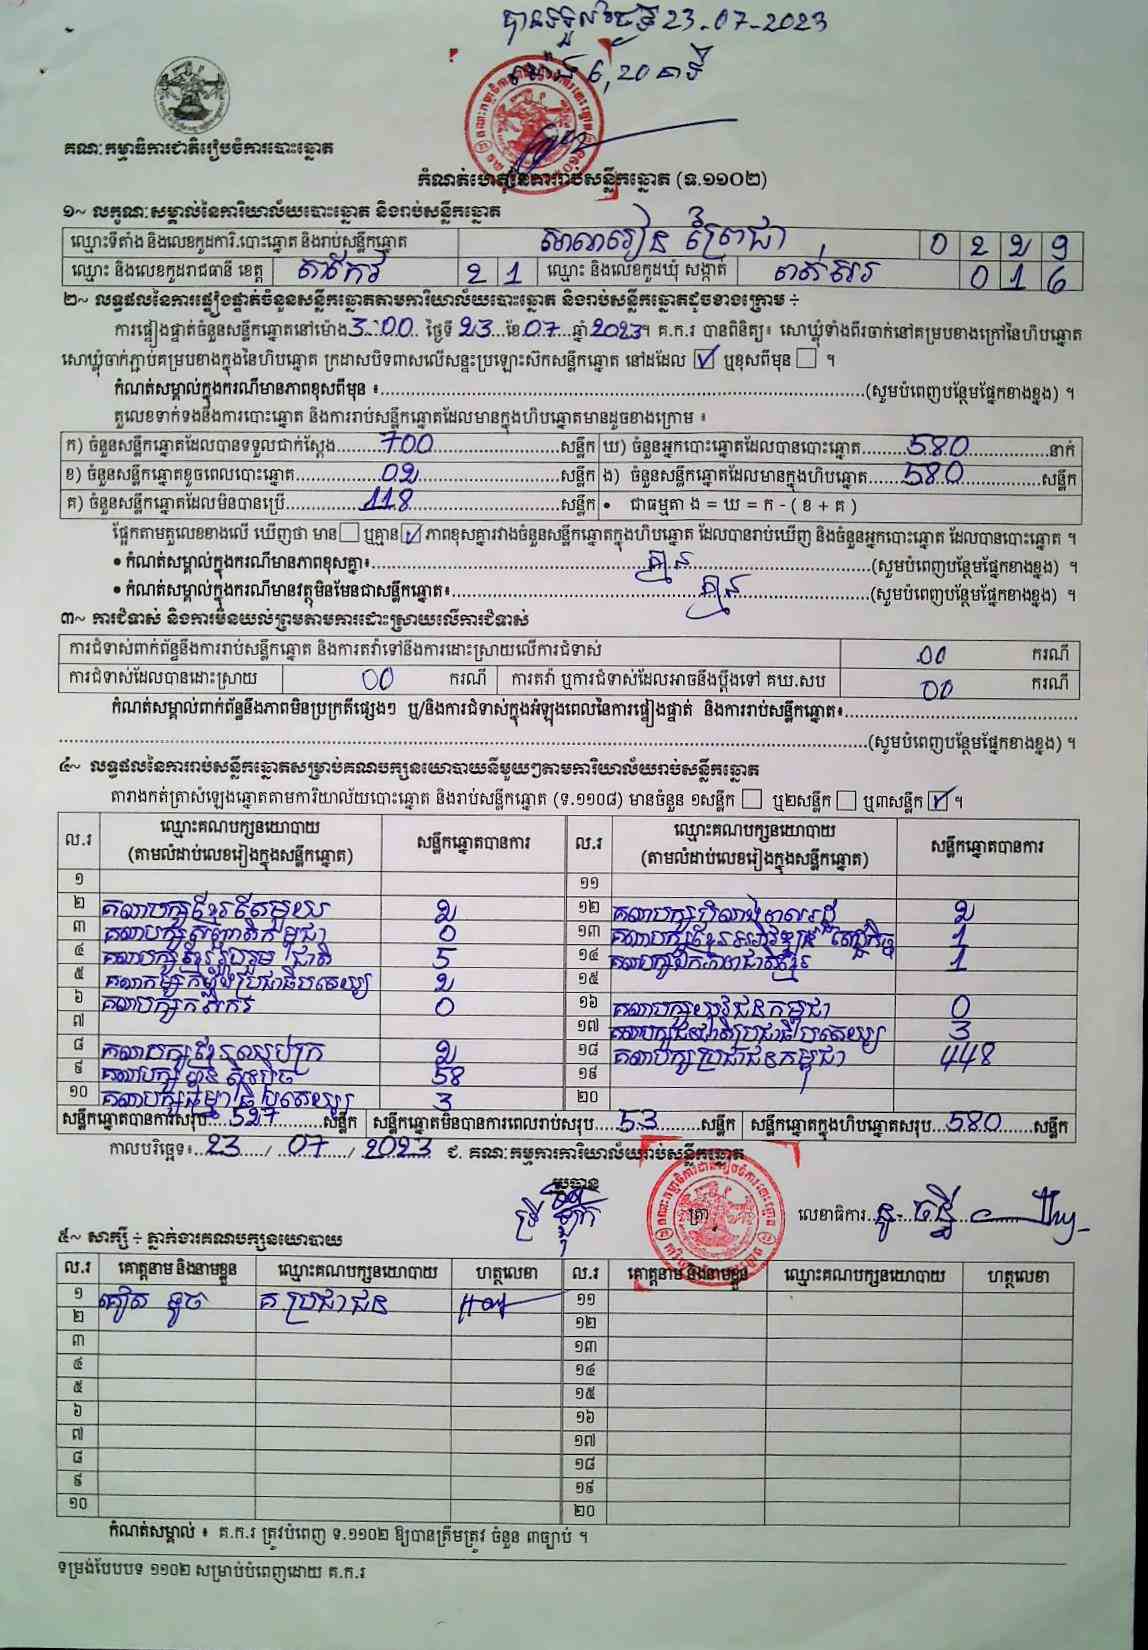 បានទទួលថ្ងៃទី 23-07-2023
ម៉ោង 6,20 នាទី
គណៈកម្មាធិការជាតិរៀបចំការបោះឆ្នោត
កំណត់ហេតុនៃការរាប់សន្លឹកឆ្នោត (ទ.១១០២)
១~ លក្ខណៈសម្គាល់នៃការិយាល័យបោះឆ្នោត និងរាប់សន្លឹកឆ្នោត
ឈ្មោះទីតាំង និងលេខកូដការិ.បោះឆ្នោត និងរាប់សន្លឹកឆ្នោត សាលារៀន ព្រៃជា 0 2 2 9
ឈ្មោះ និងលេខកូដរាជធានី ខេត្ត តាកែវ 2 1 ឈ្មោះ និងលេខកូដឃុំ សង្កាត់ ពត់សរ 0 1 6
២~ លទ្ធផលនៃការផ្ទៀងផ្ទាត់ចំនួនសន្លឹកឆ្នោតតាមការិយាល័យបោះឆ្នោត និងរាប់សន្លឹកឆ្នោតដូចខាងក្រោម ÷
ការផ្ទៀងផ្ទាត់ចំនួនសន្លឹកឆ្នោតនៅម៉ោង 3:00 ថ្ងៃទី 23 ខែ 07 ឆ្នាំ 2023។ គ.ក.រ បានពិនិត្យ៖ សោឃ្លុំទាំងពីរចាក់នៅគម្របខាងក្រៅនៃហិបឆ្នោត
សោឃ្លុំចាក់ភ្ជាប់គម្របខាងក្នុងនៃហិបឆ្នោត ក្រដាសបិទពាសលើសន្ទះប្រឡោះស៊កសន្លឹកឆ្នោត នៅដដែល ☑ ឬខុសពីមុន ☐ ។
កំណត់សម្គាល់ក្នុងករណីមានភាពខុសពីមុន ៖ (សូមបំពេញបន្ថែមផ្នែកខាងខ្នង) ។
តួលេខទាក់ទងនឹងការបោះឆ្នោត និងការរាប់សន្លឹកឆ្នោតដែលមានក្នុងហិបឆ្នោតមានដូចខាងក្រោម ៖
ក) ចំនួនសន្លឹកឆ្នោតដែលបានទទួលជាក់ស្តែង 700 សន្លឹក ឃ) ចំនួនអ្នកបោះឆ្នោតដែលបានបោះឆ្នោត 580 នាក់
ខ) ចំនួនសន្លឹកឆ្នោតខូចពេលបោះឆ្នោត 02 សន្លឹក ង) ចំនួនសន្លឹកឆ្នោតដែលមានក្នុងហិបឆ្នោត 580 សន្លឹក
គ) ចំនួនសន្លឹកឆ្នោតដែលមិនបានប្រើ 118 សន្លឹក • ជាធម្មតា ង = ឃ = ក - ( ខ + គ )
ផ្អែកតាមតួលេខខាងលើ ឃើញថា មាន ☐ ឬគ្មាន ☑ ភាពខុសគ្នារវាងចំនួនសន្លឹកឆ្នោតក្នុងហិបឆ្នោត ដែលបានរាប់ឃើញ និងចំនួនអ្នកបោះឆ្នោត ដែលបានបោះឆ្នោត ។
• កំណត់សម្គាល់ក្នុងករណីមានភាពខុសគ្នា៖ គ្មាន (សូមបំពេញបន្ថែមផ្នែកខាងខ្នង) ។
• កំណត់សម្គាល់ក្នុងករណីមានវត្ថុមិនមែនជាសន្លឹកឆ្នោត៖ គ្មាន (សូមបំពេញបន្ថែមផ្នែកខាងខ្នង) ។
៣~ ការជំទាស់ និងការមិនយល់ព្រមតាមការដោះស្រាយលើការជំទាស់
ការជំទាស់ពាក់ព័ន្ធនឹងការរាប់សន្លឹកឆ្នោត និងការតវ៉ាទៅនឹងការដោះស្រាយលើការជំទាស់ 00 ករណី
ការជំទាស់ដែលបានដោះស្រាយ 00 ករណី ការតវ៉ា ឬការជំទាស់ដែលអាចនឹងប្តឹងទៅ គឃ.សប 00 ករណី
កំណត់សម្គាល់ពាក់ព័ន្ធនឹងភាពមិនប្រក្រតីផ្សេងៗ ឬ/និងការជំទាស់ក្នុងអំឡុងពេលនៃការផ្ទៀងផ្ទាត់ និងការរាប់សន្លឹកឆ្នោត៖
(សូមបំពេញបន្ថែមផ្នែកខាងខ្នង) ។
៤~ លទ្ធផលនៃការរាប់សន្លឹកឆ្នោតសម្រាប់គណបក្សនយោបាយនីមួយៗតាមការិយាល័យរាប់សន្លឹកឆ្នោត
តារាងកត់ត្រាសំឡេងឆ្នោតតាមការិយាល័យបោះឆ្នោត និងរាប់សន្លឹកឆ្នោត (ទ.១១០៨) មានចំនួន ១សន្លឹក ☐ ឬ២សន្លឹក ☐ ឬ៣សន្លឹក ☑ ។
ល.រ ឈ្មោះគណបក្សនយោបាយ (តាមលំដាប់លេខរៀងក្នុងសន្លឹកឆ្នោត) សន្លឹកឆ្នោតបានការ ល.រ ឈ្មោះគណបក្សនយោបាយ (តាមលំដាប់លេខរៀងក្នុងសន្លឹកឆ្នោត) សន្លឹកឆ្នោតបានការ
១ ១១
២ គណបក្សខ្មែរតែមួយ 2 ១២ គណបក្សសំណាងពលរដ្ឋ 2
៣ គណបក្សសញ្ជាតិកម្ពុជា 0 ១៣ គណបក្សខ្មែរអភិវឌ្ឍន៍សេដ្ឋកិច្ច 1
៤ គណបក្សខ្មែររួបរួមជាតិ 5 ១៤ គណបក្សឯកភាពជាតិខ្មែរ 1
៥ គណបក្សកម្លាំងប្រជាធិបតេយ្យ 2 ១៥
៦ គណបក្សកសិករ 0 ១៦ គណបក្សយុវជនកម្ពុជា 0
៧ ១៧ គណបក្សជនជាតិប្រជាធិបតេយ្យ 3
៨ គណបក្សខ្មែរឈប់ក្រ 2 ១៨ គណបក្សប្រជាជនកម្ពុជា 448
៩ គណបក្សហ្វ៊ុនស៊ិនប៉ិច 58 ១៩
១០ គណបក្សធម្មាធិបតេយ្យ 3 ២០
សន្លឹកឆ្នោតបានការសរុប 527 សន្លឹក សន្លឹកឆ្នោតមិនបានការពេលរាប់សរុប 53 សន្លឹក សន្លឹកឆ្នោតក្នុងហិបឆ្នោតសរុប 580 សន្លឹក
កាលបរិច្ឆេទ៖ 23 / 07 / 2023 ជ. គណៈកម្មការការិយាល័យរាប់សន្លឹកឆ្នោត
ប្រធាន
ត្រា លេខាធិការ
៥~ សាក្សី ÷ ភ្នាក់ងារគណបក្សនយោបាយ
ល.រ គោត្តនាម និងនាមខ្លួន ឈ្មោះគណបក្សនយោបាយ ហត្ថលេខា ល.រ គោត្តនាម និងនាមខ្លួន ឈ្មោះគណបក្សនយោបាយ ហត្ថលេខា
១ គឿន ទូច គ ប្រជាជន ១១
២ ១២
៣ ១៣
៤ ១៤
៥ ១៥
៦ ១៦
៧ ១៧
៨ ១៨
៩ ១៩
១០ ២០
កំណត់សម្គាល់ ៖ គ.ក.រ ត្រូវបំពេញ ទ.១១០២ ឱ្យបានត្រឹមត្រូវ ចំនួន ៣ច្បាប់ ។
ទម្រង់បែបបទ ១១០២ សម្រាប់បំពេញដោយ គ.ក.រ